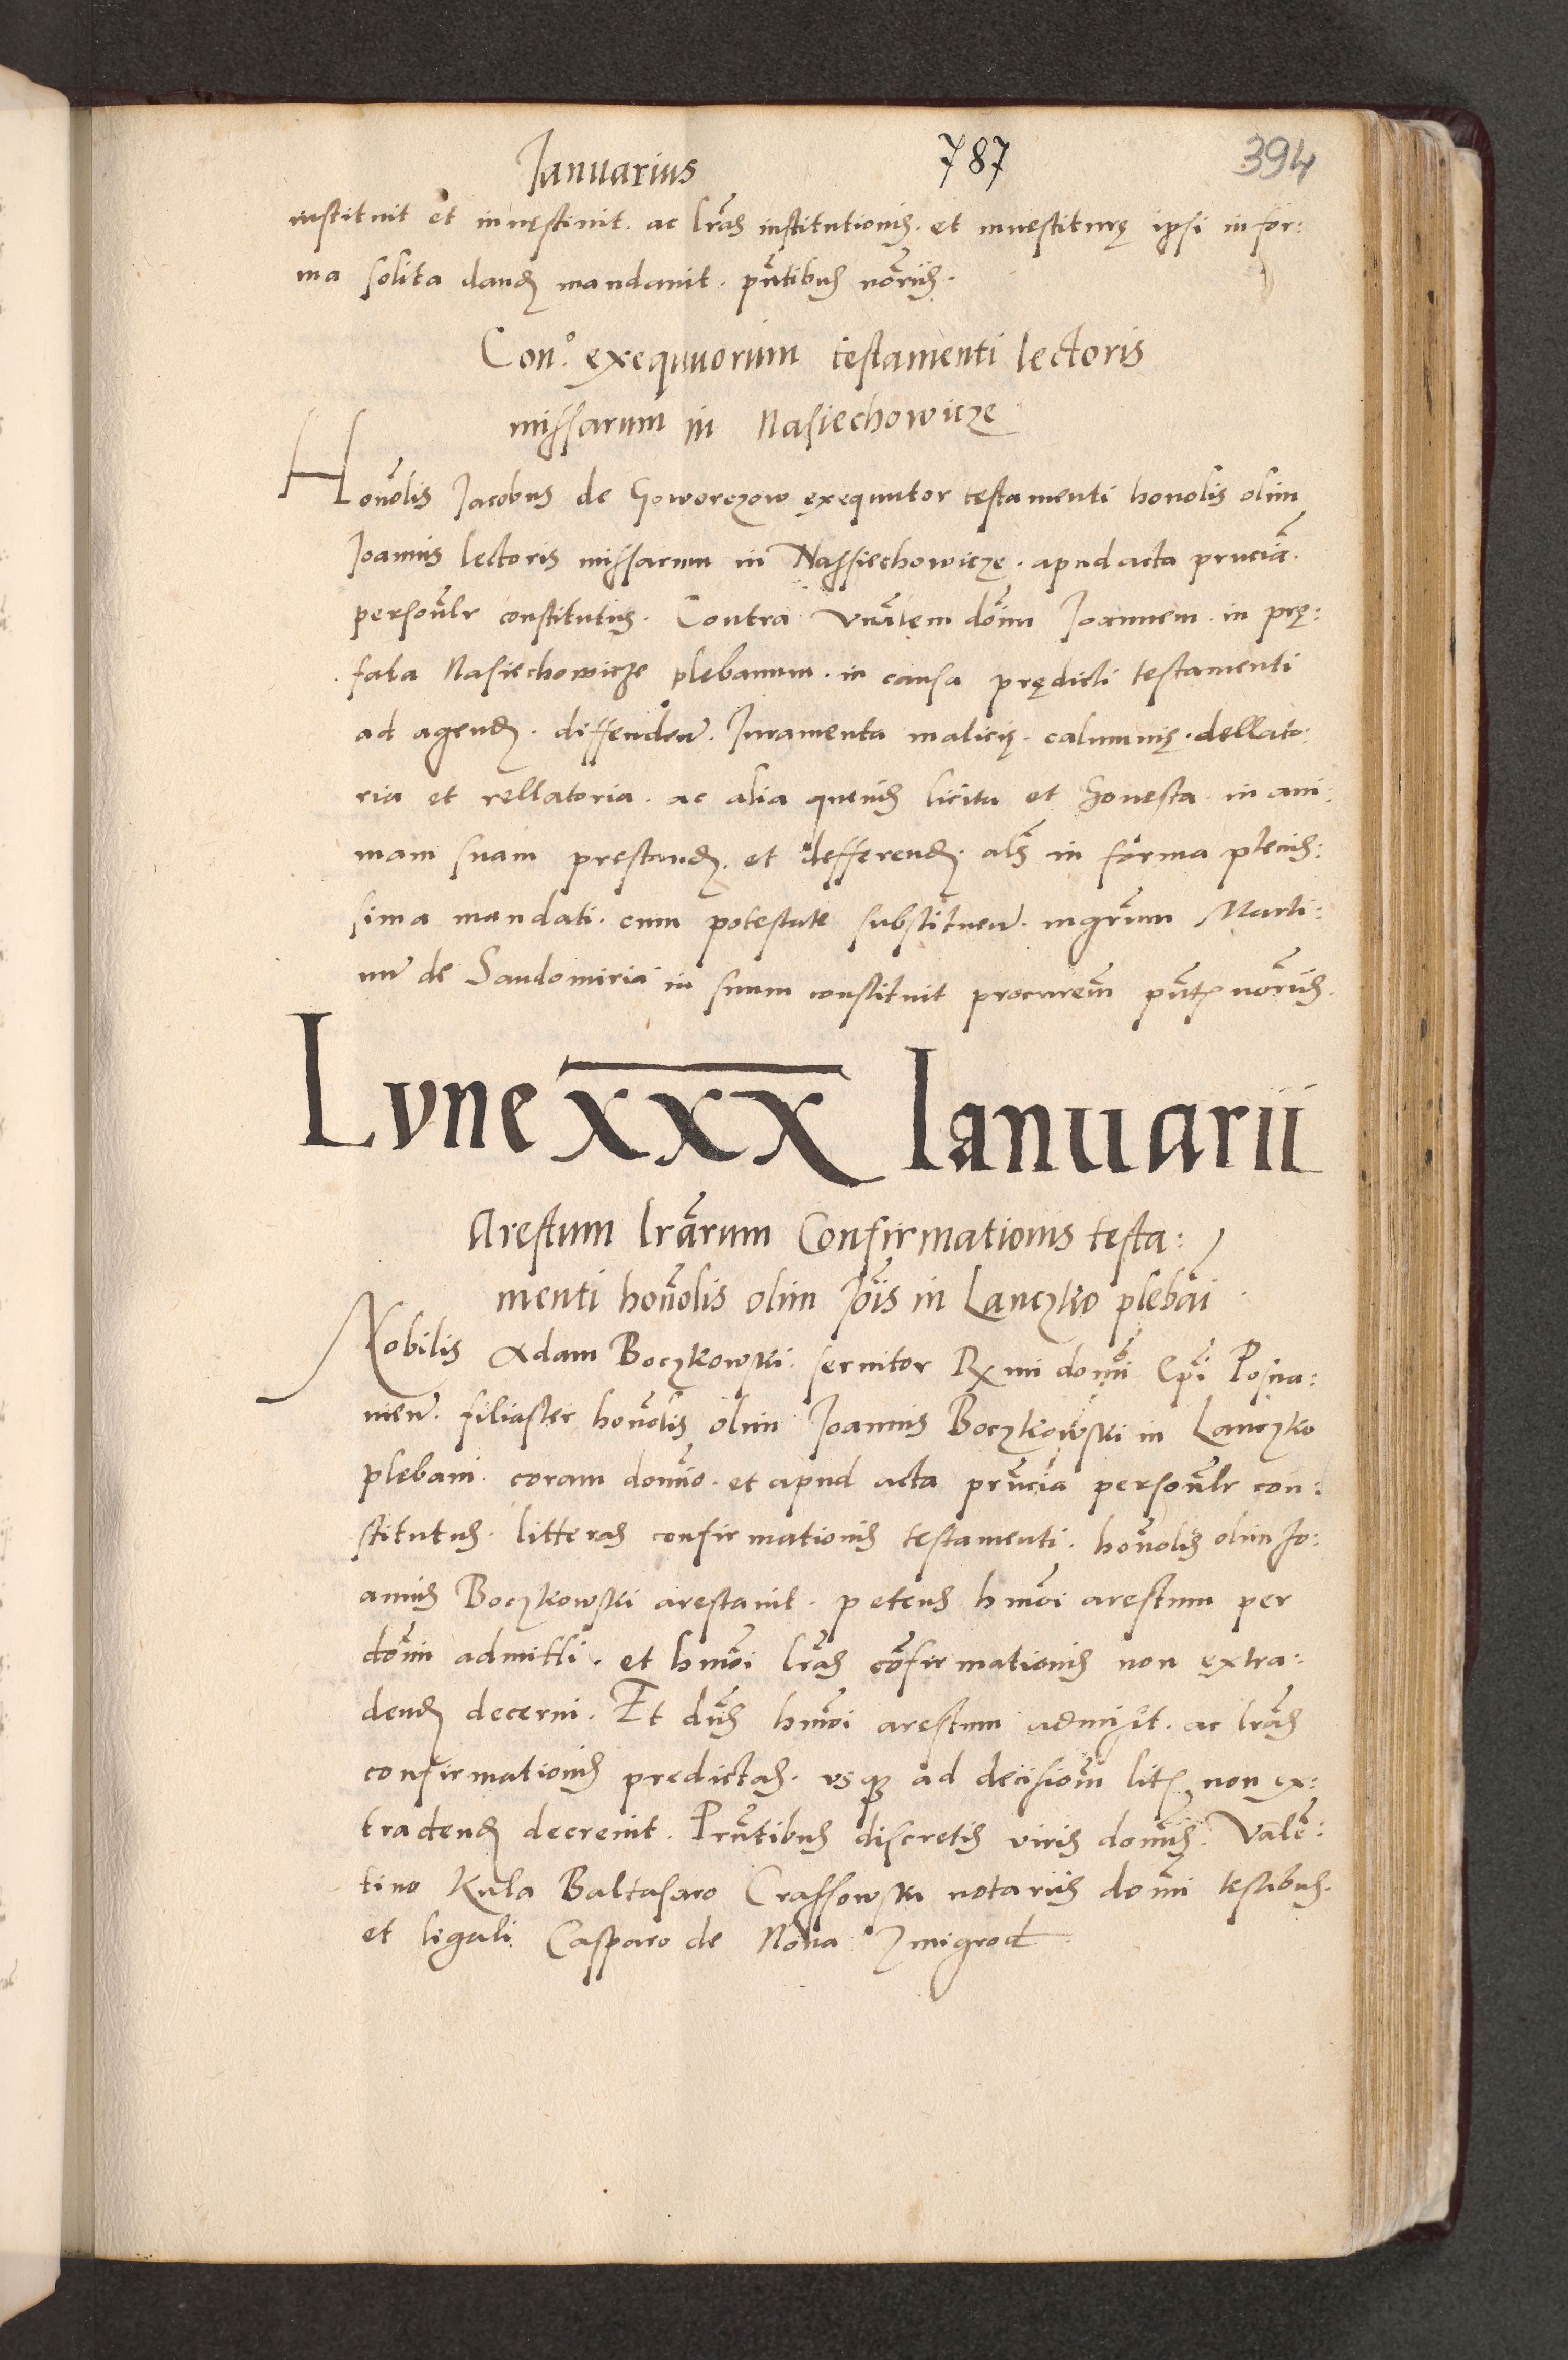 Ianuarius 787 394
instituit et inuęstiuit. ac lr̃as institutionis. et inuestiturę ipsi in for:
ma solita dandȝ mandauit. pñtibus nõriis.
Con.º exequuorum testamenti lectoris
missarum in Nasiechowicze
Honõlis Jacobus de Goworozow ęxequutor testamenti honolis olim
Joannis lectoris missarum in Nassiechowiczę. apud acta pruciã.
persoñlr constitutus. Contra vñãlem dõmi Joannem in prę:
fata Nasiechowicze plebanum. in causa prędicti testamenti
ad agendȝ. diffendeñ. Juramenta maliciȩ. calumnię. dellato:
ria et rellatoria. ac alia queuis licita et honesta. in ani:
mam suam prestandȝ. et defferendȝ. als in forma plenis:
sima mandati. cum potestate substitueñ. mgr̃um Marti:
nũ de Sandomiria in suum constituit procurem̃ pñtȝ nõriis.
Lvne xxx Ianuarii
Arestum lrãrum Confirmationis testa:
menti honõlis olim Jõis in Lanczko plebãi
Nobilis Adam Boczkowski. seruitor Rx̃mi domñi Ep̃i Posna:
nieñ. filiaster honõlis olim Joannis Boczkowski in Lanczko
plebani. coram domĩo. et apud acta prũcia persoñlr con:
stitutus. litteras confirmationis testamenti. honõlis olim Jo:
annis Boczkowski arestauit. petens hmõi arestum per
dõmi admitti. et hmõi lrãs cõfirmationis non ęxtra:
dendȝ decerni. Et dñs hmõi arestum admisit. ac lrãs
confirmationis predictas. vsqȝ ad decisiom̃ litȝ non ęx:
tradendȝ decreuit. Prñtibus discretis viris domĩs. Valẽ:
tino Kula Baltasaro Crassowski notariis domĩ testibus.
et ligali Casparo de Noua Zmigrod